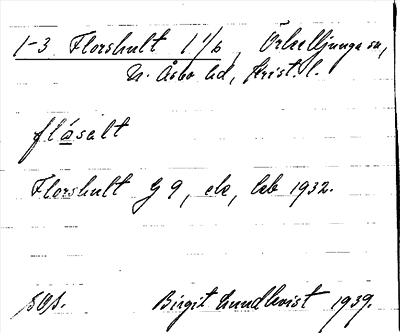 1-3 Florshult 1 1/6, Örkelljunga sn,
N. Åsbo hd, Krist. l.
flåsalt
Florshult G 9, ek, lab 1932.
Birgit Lundkvist 1939.